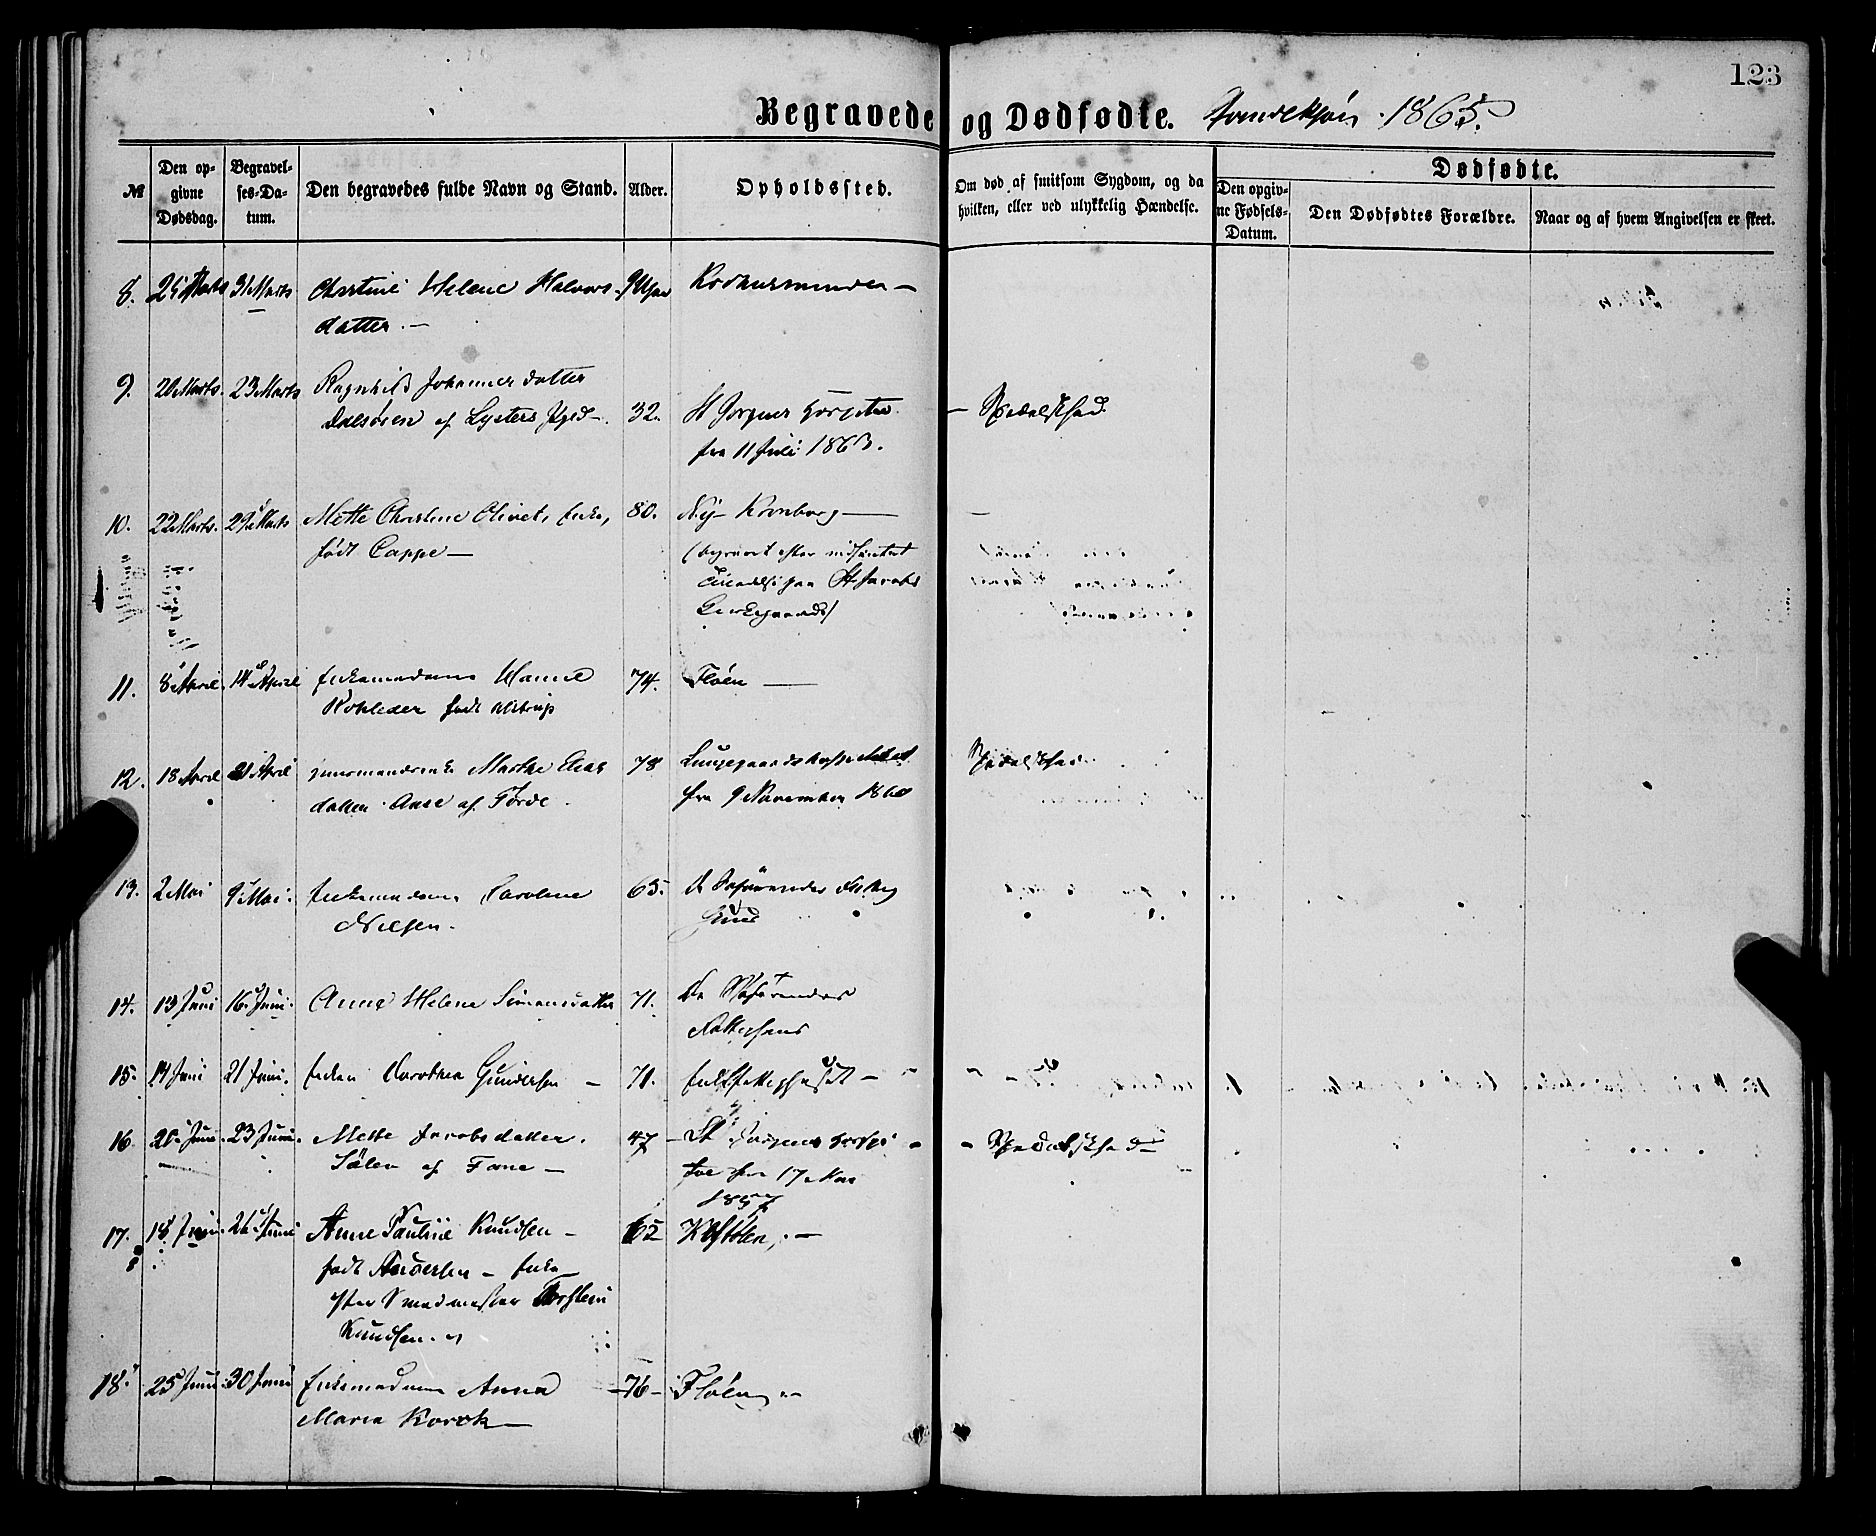 123
Begravede og Dødfødte. Qvindekjøn 1865.
№
Den opgivne Dødsdag.
Begravelses-Datum.
Den begravedes fulde Navn og Stand.
Alder.
Opholdssted.
Om død af smitsom Sygdom, og da hvilken, eller ved ulykkelig Hændelse.
Dødfødte.
Den opgivne Fødsels-Datum.
Den Dødfødtes Forældre.
Naar og af hvem Angivelsen er skeet.
8. Marts 31 Marts Christine Helene Halvors-
datter. —
9. 20 Marts. 23 Marts Ragnhild Johannesdatter
Dalsøren af Lysters Pgld —. 32. St Jørgens Hospital — Spedalskhed.
fra 11 Juli 1863.
10. 22 Marts. 29 Marts Mette Christine Olivet, Enke, 80. Ny- Kronborg —
født Cappe —
(begravet efter
paa St Jacobs
Kirkegaard)
11. 8 April. 14 April Enkemadame Hanne 74. Fløen —
født
12. 18 April 21 April Marthe Elias 78 Lungegaardshospitalet Spedalskhed
datter af Førde. fra 9 November
13. 2 Mai 9 Mai. Enkemadame Caroline 65. de Søfarendes Fattig
Nielsen. Huus
14. 13 Juni 16 Juni. Anne Helene Simonsdatter 71. De Søfarendes
Fattighuus
15. 14 Juni 21 Juni. Enken Dorothea Gundersen — 71. —
16. 20 Juni. 23 Juni. Mette Jacobsdatter. 47 — St Jørgens Hospi — Spedalskhed —
af Fane — tal fra 17 Mai
1857
17. 18 Juni. 26 Juni Anne Pauline Knudsen — 62 —
født Andersen — Enke
efter Smedmester Torstein
Knudsen.
18. 25 Juni 30 Juni Enkemadame Anna — 76 — Fløen
Maria —